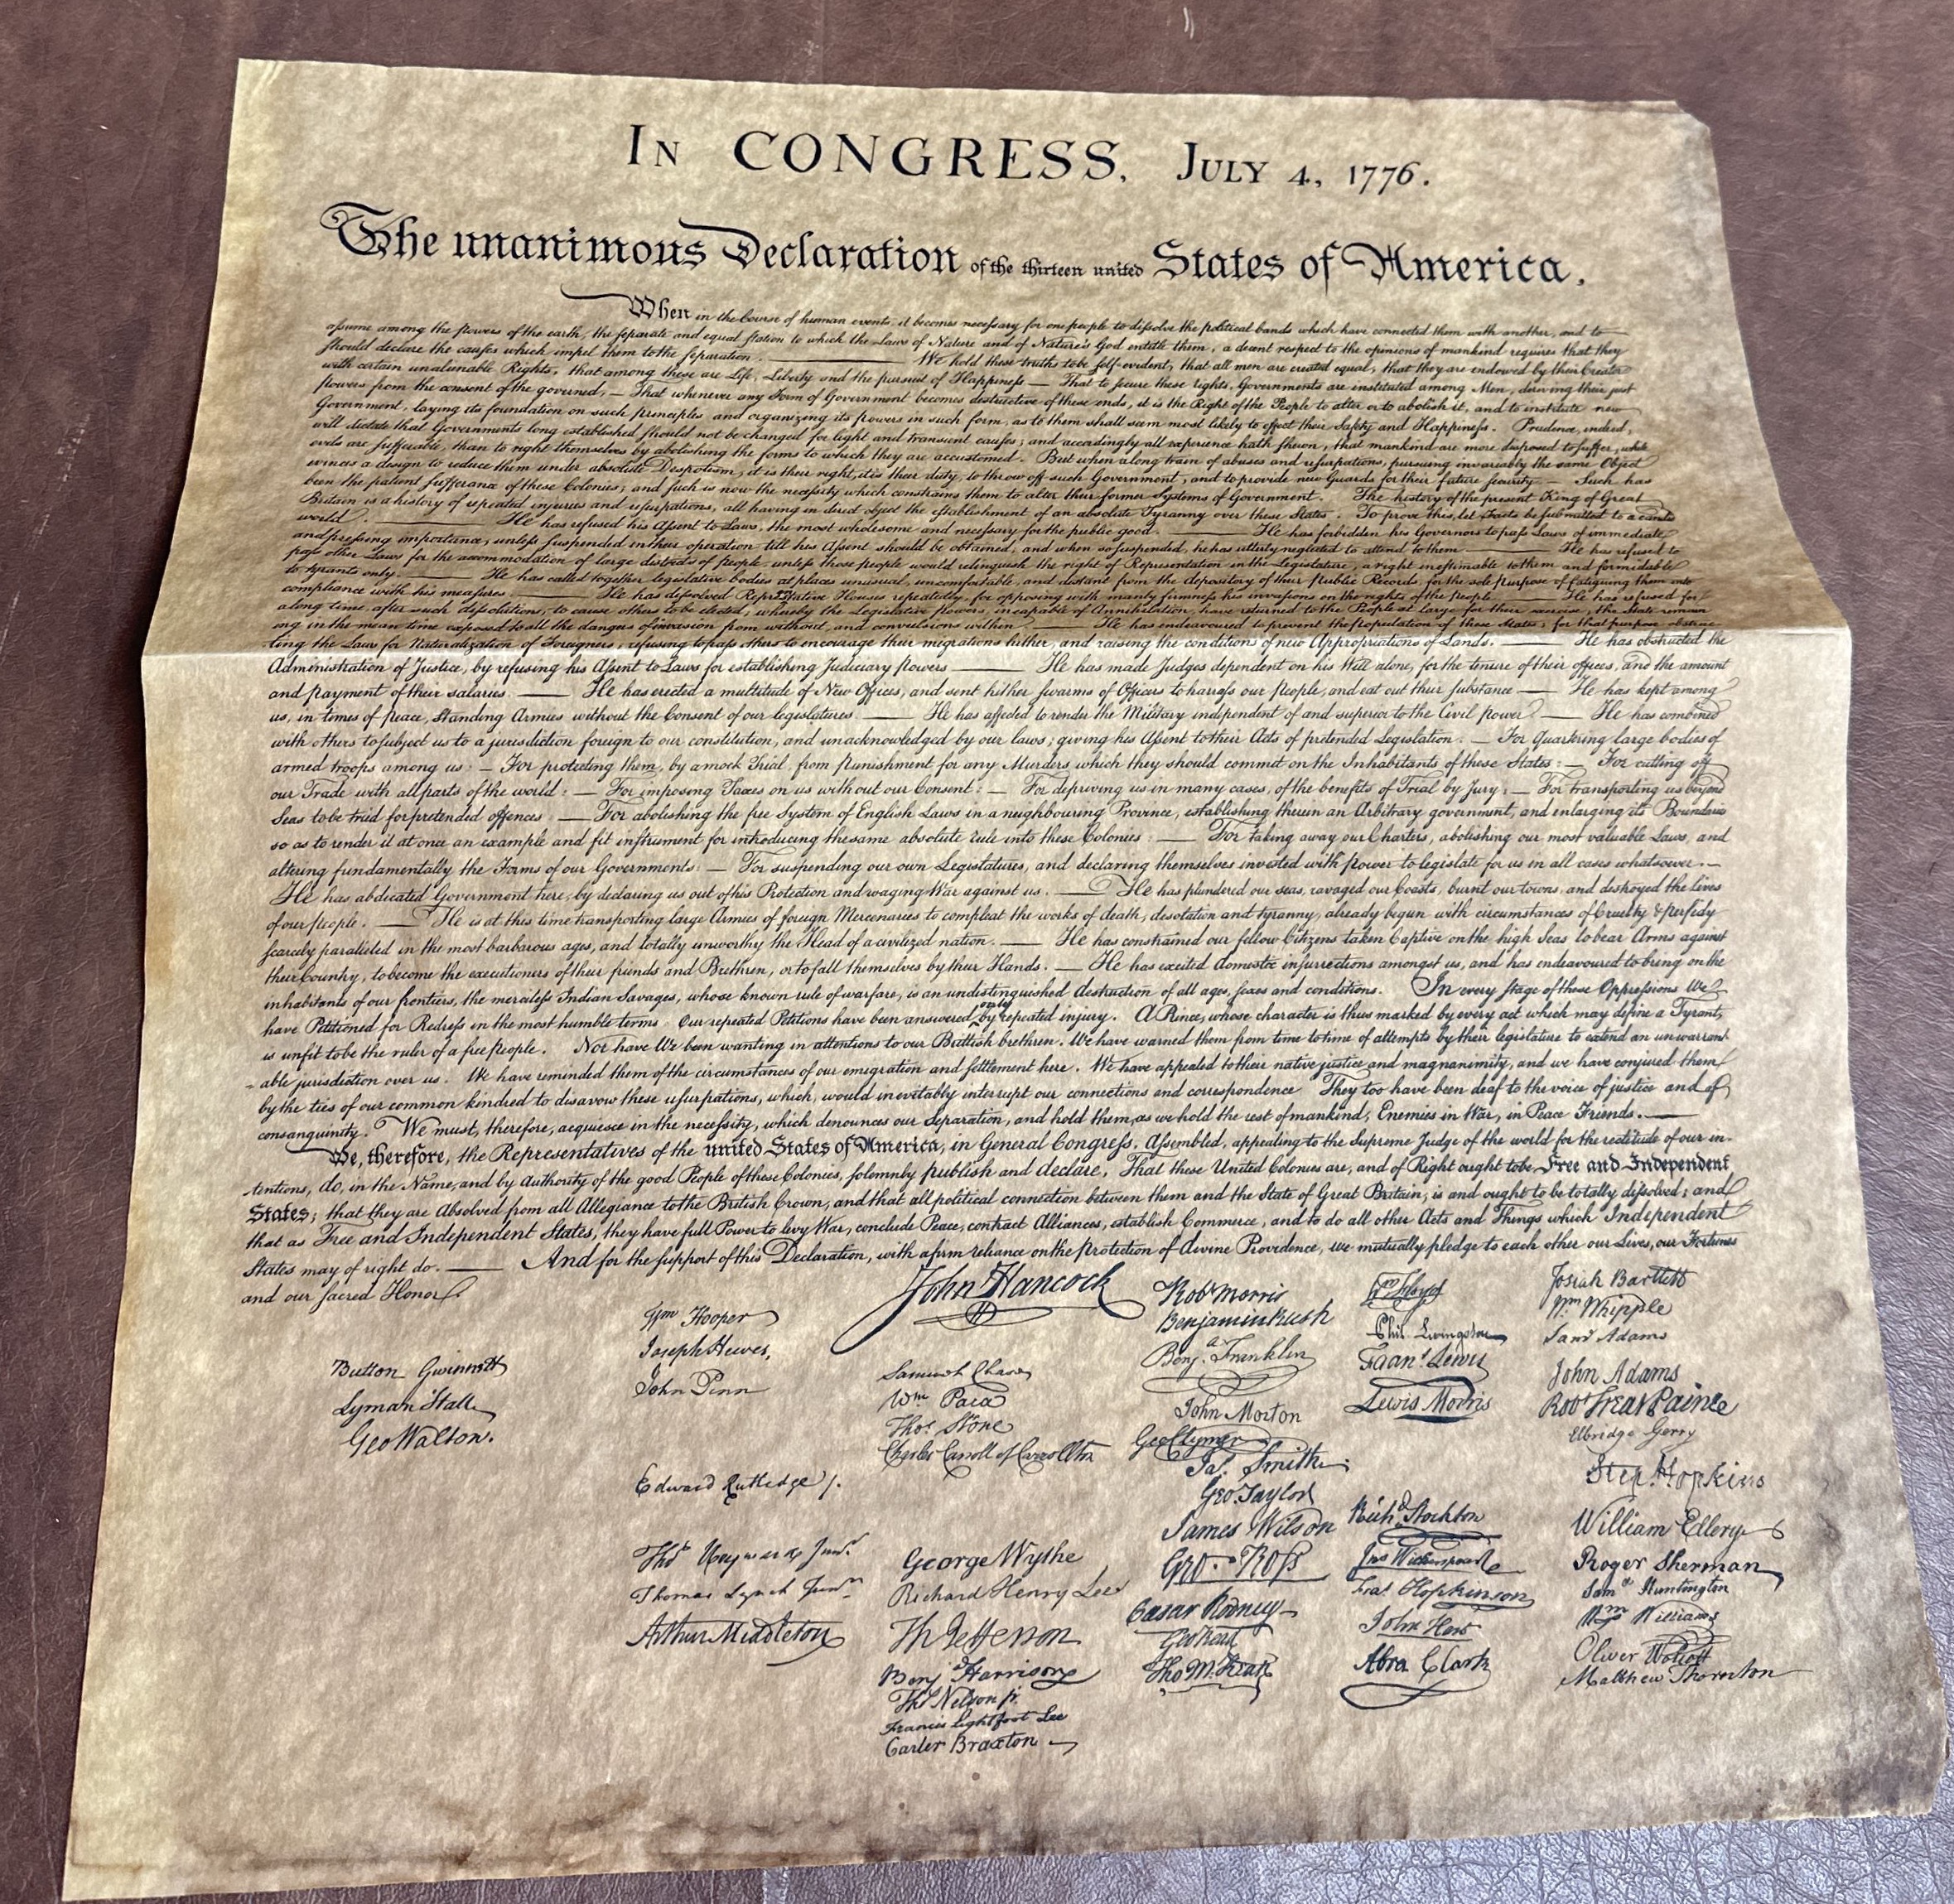 In CONGRESS, July 4, 1776.
The unanimous Declaration of the thirteen united States of America.
When in the Course of human events, it becomes necessary for one people to dissolve the political bands which have connected them with another, and to
assume among the powers of the earth, the separate and equal station to which the Laws of Nature and of Nature's God entitle them, a decent respect to the opinions of mankind requires that they
should declare the causes which impel them to the separation. — We hold these truths to be self-evident, that all men are created equal, that they are endowed by their Creator
with certain unalienable Rights, that among these are Life, Liberty and the pursuit of Happiness — That to secure these rights, Governments are instituted among Men, deriving their just
powers from the consent of the governed, — That whenever any Form of Government becomes destructive of these ends, it is the Right of the People to alter or to abolish it, and to institute new
Government, laying its foundation on such principles and organizing its powers in such form, as to them shall seem most likely to effect their Safety and Happiness. Prudence, indeed,
will dictate that Governments long established should not be changed for light and transient causes; and accordingly all experience hath shewn, that mankind are more disposed to suffer, while
evils are sufferable, than to right themselves by abolishing the forms to which they are accustomed. But when a long train of abuses and usurpations, pursuing invariably the same Object
evinces a design to reduce them under absolute Despotism, it is their right, it is their duty, to throw off such Government, and to provide new Guards for their future security. — Such has
been the patient sufferance of these Colonies; and such is now the necessity which constrains them to alter their former Systems of Government. The history of the present King of Great
Britain is a history of repeated injuries and usurpations, all having in direct object the establishment of an absolute Tyranny over these States. To prove this, let Facts be submitted to a candid
world. — He has refused his Assent to Laws, the most wholesome and necessary for the public good. — He has forbidden his Governors to pass Laws of immediate
and pressing importance, unless suspended in their operation till his Assent should be obtained; and when so suspended, he has utterly neglected to attend to them. — He has refused to
pass other Laws for the accommodation of large districts of people, unless those people would relinquish the right of Representation in the Legislature, a right inestimable to them and formidable
to tyrants only. — He has called together legislative bodies at places unusual, uncomfortable, and distant from the depository of their Public Records, for the sole purpose of fatiguing them into
compliance with his measures. — He has dissolved Representative Houses repeatedly, for opposing with manly firmness his invasions on the rights of the people. — He has refused for
a long time, after such dissolutions, to cause others to be elected; whereby the Legislative powers, incapable of Annihilation, have returned to the People at large for their exercise; the State remain-
ing in the mean time exposed to all the dangers of invasion from without, and convulsions within. — He has endeavoured to prevent the population of these States; for that purpose obstruc-
ting the Laws for Naturalization of Foreigners; refusing to pass others to encourage their migrations hither, and raising the conditions of new Appropriations of Lands. — He has obstructed the
Administration of Justice, by refusing his Assent to Laws for establishing Judiciary powers — He has made Judges dependent on his Will alone, for the tenure of their offices, and the amount
and payment of their salaries. — He has erected a multitude of New Offices, and sent hither swarms of Officers to harrass our people, and eat out their substance — He has kept among
us, in times of peace, Standing Armies without the Consent of our legislatures. — He has affected to render the Military independent of and superior to the Civil power. — He has combined
with others to subject us to a jurisdiction foreign to our constitution, and unacknowledged by our laws; giving his Assent to their Acts of pretended Legislation. — For Quartering large bodies of
armed troops among us: — For protecting them, by a mock Trial, from punishment for any Murders which they should commit on the Inhabitants of these States: — For cutting off
our Trade with all parts of the world: — For imposing Taxes on us without our Consent: — For depriving us in many cases, of the benefits of Trial by Jury: — For transporting us beyond
Seas to be tried for pretended offences — For abolishing the free System of English Laws in a neighbouring Province, establishing therein an Arbitrary government, and enlarging its Boundaries
so as to render it at once an example and fit instrument for introducing the same absolute rule into these Colonies: — For taking away our Charters, abolishing our most valuable Laws, and
altering fundamentally the Forms of our Governments: — For suspending our own Legislatures, and declaring themselves invested with power to legislate for us in all cases whatsoever. —
He has abdicated Government here, by declaring us out of his Protection and waging War against us. — He has plundered our seas, ravaged our Coasts, burnt our towns, and destroyed the lives
of our people. — He is at this time transporting large Armies of foreign Mercenaries to compleat the works of death, desolation and tyranny, already begun with circumstances of Cruelty & perfidy
scarcely paralleled in the most barbarous ages, and totally unworthy the Head of a civilized nation. — He has constrained our fellow Citizens taken Captive on the high Seas to bear Arms against
their Country, to become the executioners of their friends and Brethren, or to fall themselves by their Hands. — He has excited domestic insurrections amongst us, and has endeavoured to bring on the
inhabitants of our frontiers, the merciless Indian Savages, whose known rule of warfare, is an undistinguished destruction of all ages, sexes and conditions. In every stage of these Oppressions We
have Petitioned for Redress in the most humble terms: Our repeated Petitions have been answered only by repeated injury. A Prince, whose character is thus marked by every act which may define a Tyrant,
is unfit to be the ruler of a free people. Nor have We been wanting in attentions to our Brittish brethren. We have warned them from time to time of attempts by their legislature to extend an unwarrant-
-able jurisdiction over us. We have reminded them of the circumstances of our emigration and settlement here. We have appealed to their native justice and magnanimity, and we have conjured them
by the ties of our common kindred to disavow these usurpations, which, would inevitably interrupt our connections and correspondence They too have been deaf to the voice of justice and of
consanguinity. We must, therefore, acquiesce in the necessity, which denounces our Separation, and hold them, as we hold the rest of mankind, Enemies in War, in Peace Friends. —
We, therefore, the Representatives of the united States of America, in General Congress, Assembled, appealing to the Supreme Judge of the world for the rectitude of our in-
tentions, do, in the Name, and by Authority of the good People of these Colonies, solemnly publish and declare, That these United Colonies are, and of Right ought to be Free and Independent
States; that they are Absolved from all Allegiance to the British Crown, and that all political connection between them and the State of Great Britain, is and ought to be totally dissolved; and
that as Free and Independent States, they have full Power to levy War, conclude Peace, contract Alliances, establish Commerce, and to do all other Acts and Things which Independent
States may of right do. — And for the support of this Declaration, with a firm reliance on the protection of divine Providence, we mutually pledge to each other our Lives, our Fortunes
and our sacred Honor.
Button Gwinnett
Lyman Hall
Geo Walton.
Wm Hooper
Joseph Hewes,
John Penn
Edward Rutledge /.
Thos Heyward Junr.
Thomas Lynch Junr.
Arthur Middleton
John Hancock
Samuel Chase
Wm. Paca
Thos. Stone
Charles Carroll of Carrollton
George Wythe
Richard Henry Lee
Th Jefferson
Benj Harrison
Thos Nelson jr.
Francis Lightfoot Lee
Carter Braxton
Robt Morris
Benjamin Rush
Benja. Franklin
John Morton
Geo Clymer
Jas. Smith
Geo. Taylor
James Wilson
Geo. Ross
Caesar Rodney
Geo Read
Tho M:Kean
Wm Floyd
Phil. Livingston
Frans. Lewis
Lewis Morris
Richd. Stockton
Jno Witherspoon
Fras. Hopkinson
John Hart
Abra Clark
Josiah Bartlett
Wm Whipple
Saml Adams
John Adams
Robt Treat Paine
Elbridge Gerry
Step. Hopkins
William Ellery
Roger Sherman
Saml Huntington
Wm Williams
Oliver Wolcott
Matthew Thornton